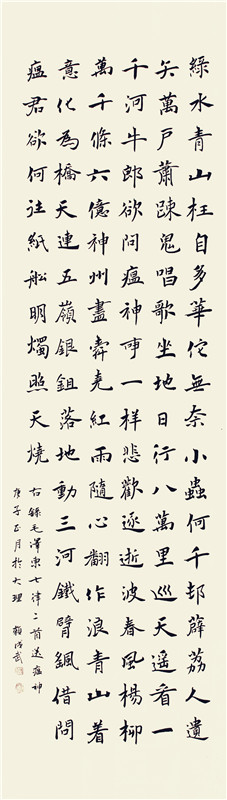 綠水青山枉自多華佗無奈小蟲何千邨薜荔人遺
矢萬戶蕭踈鬼唱歌坐地日行八萬里巡天遥看一
千河牛郎欲問瘟神事一样悲歡逐逝波春風楊柳
萬千條六億神州盡舜堯紅雨隨心翻作浪青山着
意化為橋天連五嶺銀鉏落地動三河鐵臂颻借問
瘟君欲何往紙舩明燭照天燒
右錄毛澤東七律二首送瘟神
庚子正月於大理